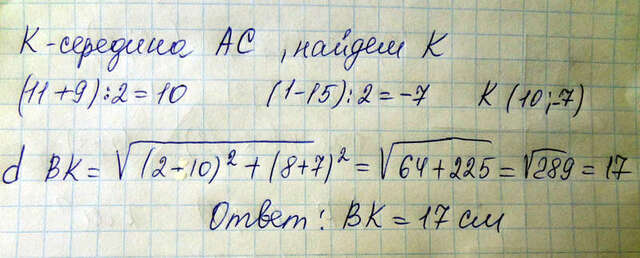 К-середина АС, найдем К
(11+9):2=10 (1-15):2=-7 К (10;-7)
d ВК = √(2-10)² + (8+7)² = √64+225 = √289 = 17
Ответ: ВК = 17 см